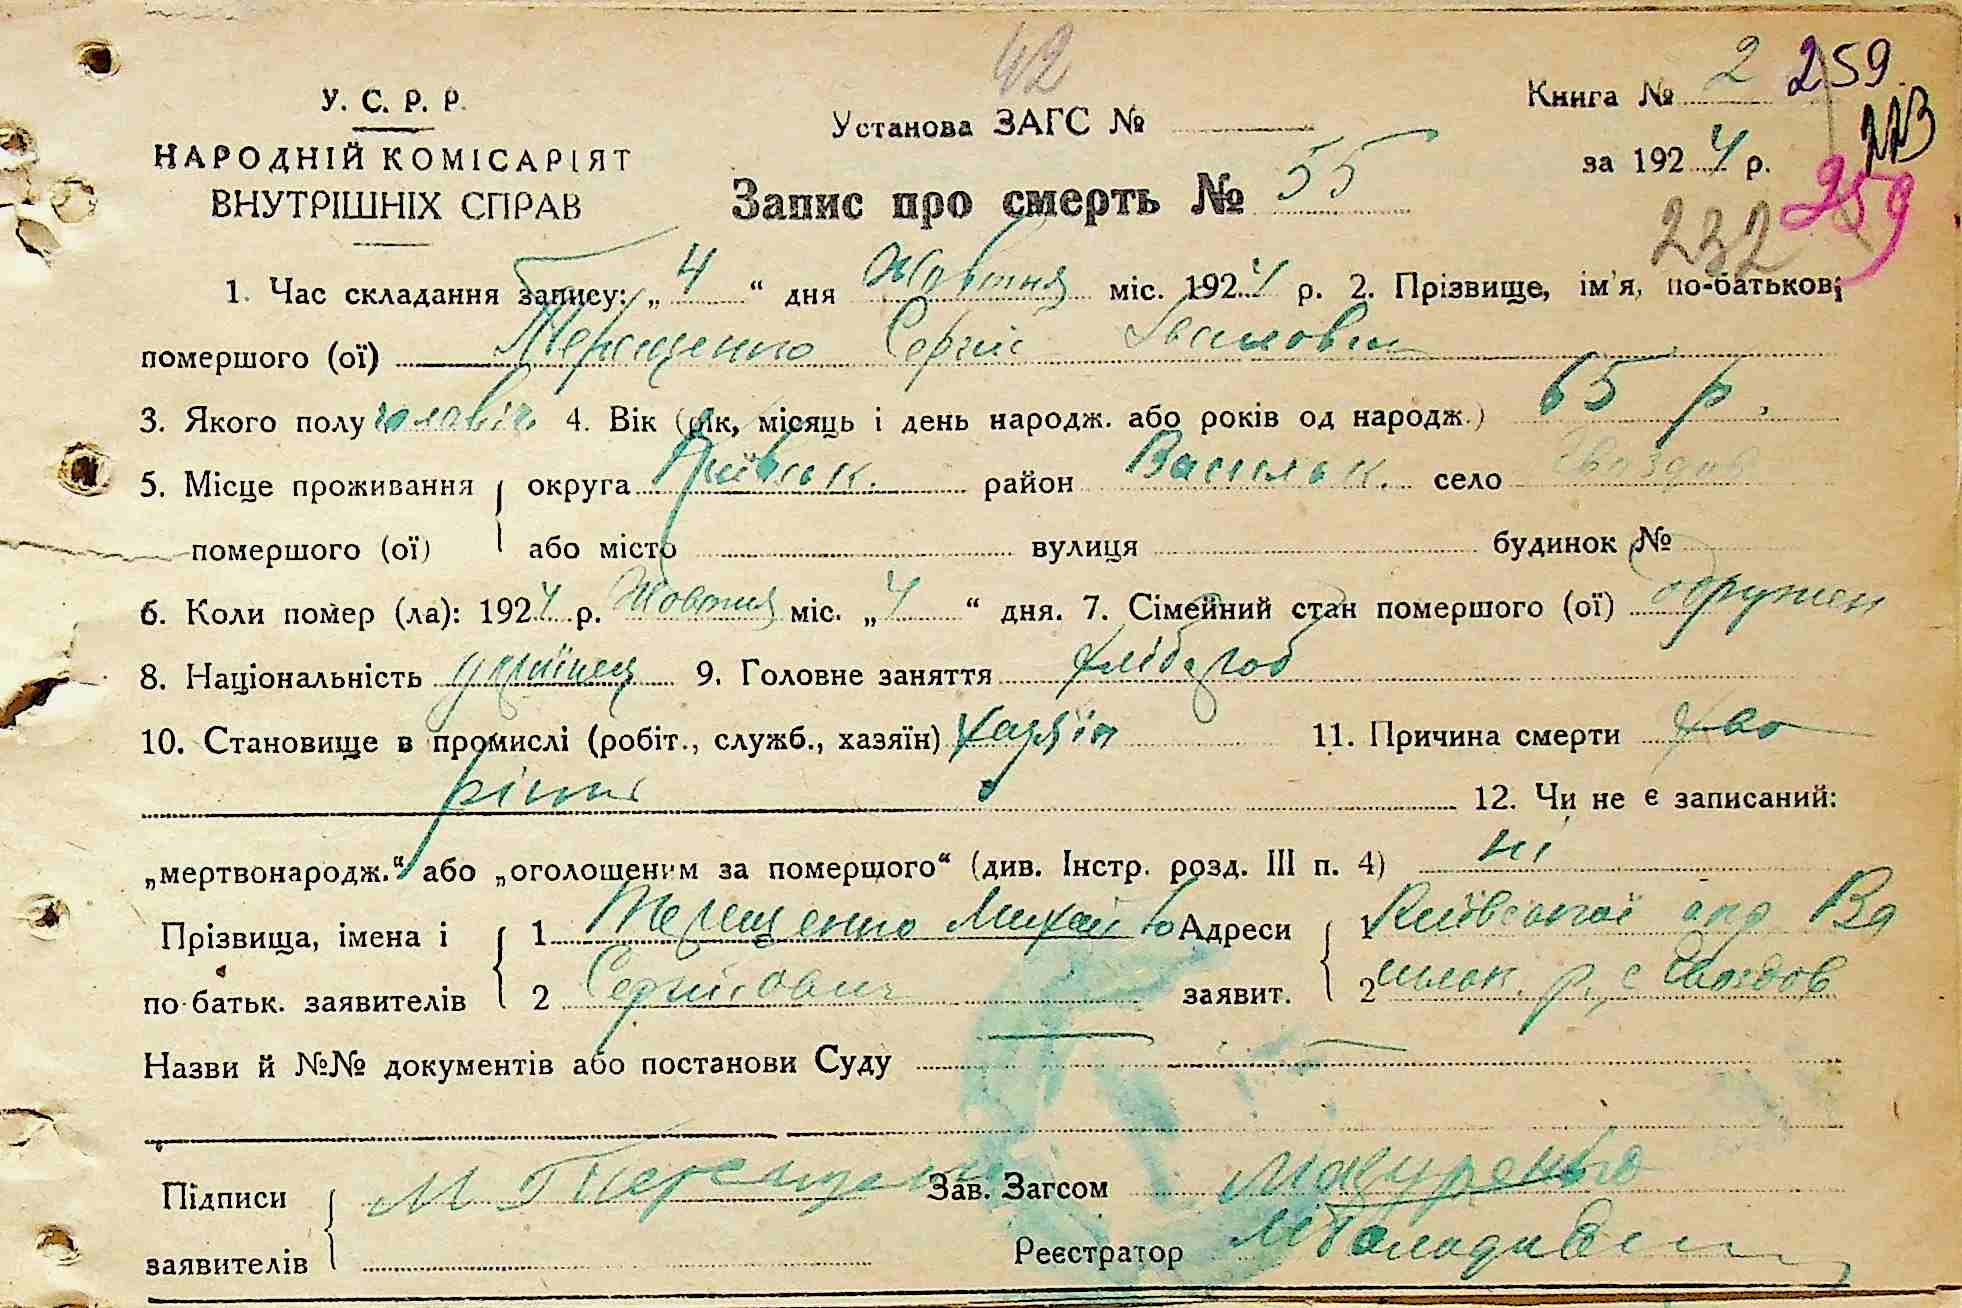 42
Книга № 2 259
У. С. Р. Р.
Установа ЗАГС №
223
НАРОДНІЙ КОМІСАРІЯТ
за 1924 р.
259
ВНУТРІШНІХ СПРАВ
Запис про смерть № 55
232
1. Час складання запису: „4“ дня Жовтня міс. 1924 р. 2. Прізвище, ім'я, по-батькові
помершого (ої) Терещенко Сергій Іванович
3. Якого полу чоловіч 4. Вік (рік, місяць і день народж. або років од народж.) 65 р.
5. Місце проживання округа Київськ. район Васильк. село Гвоздов
помершого (ої) або місто вулиця будинок №
6. Коли помер (ла): 1924 р. Жовтня міс. „4“ дня. 7. Сімейний стан помершого (ої) одружен
8. Національність українец 9. Головне заняття хлібороб
10. Становище в промислі (робіт., служб., хазяїн) хазяїн 11. Причина смерти хво
рінні 12. Чи не є записаний:
„мертвонародж.“ або „оголошеним за помершого“ (див. Інстр. розд. III п. 4) ні
Прізвища, імена і 1 Терещенко Михайло Адреси 1 Київської окр Ва
по-батьк. заявителів 2 Сергійович заявит. 2 сильк. р, с Гвоздов
Назви й №№ документів або постанови Суду
Підписи М Терещенко Зав. Загсом
заявителів Реєстратор